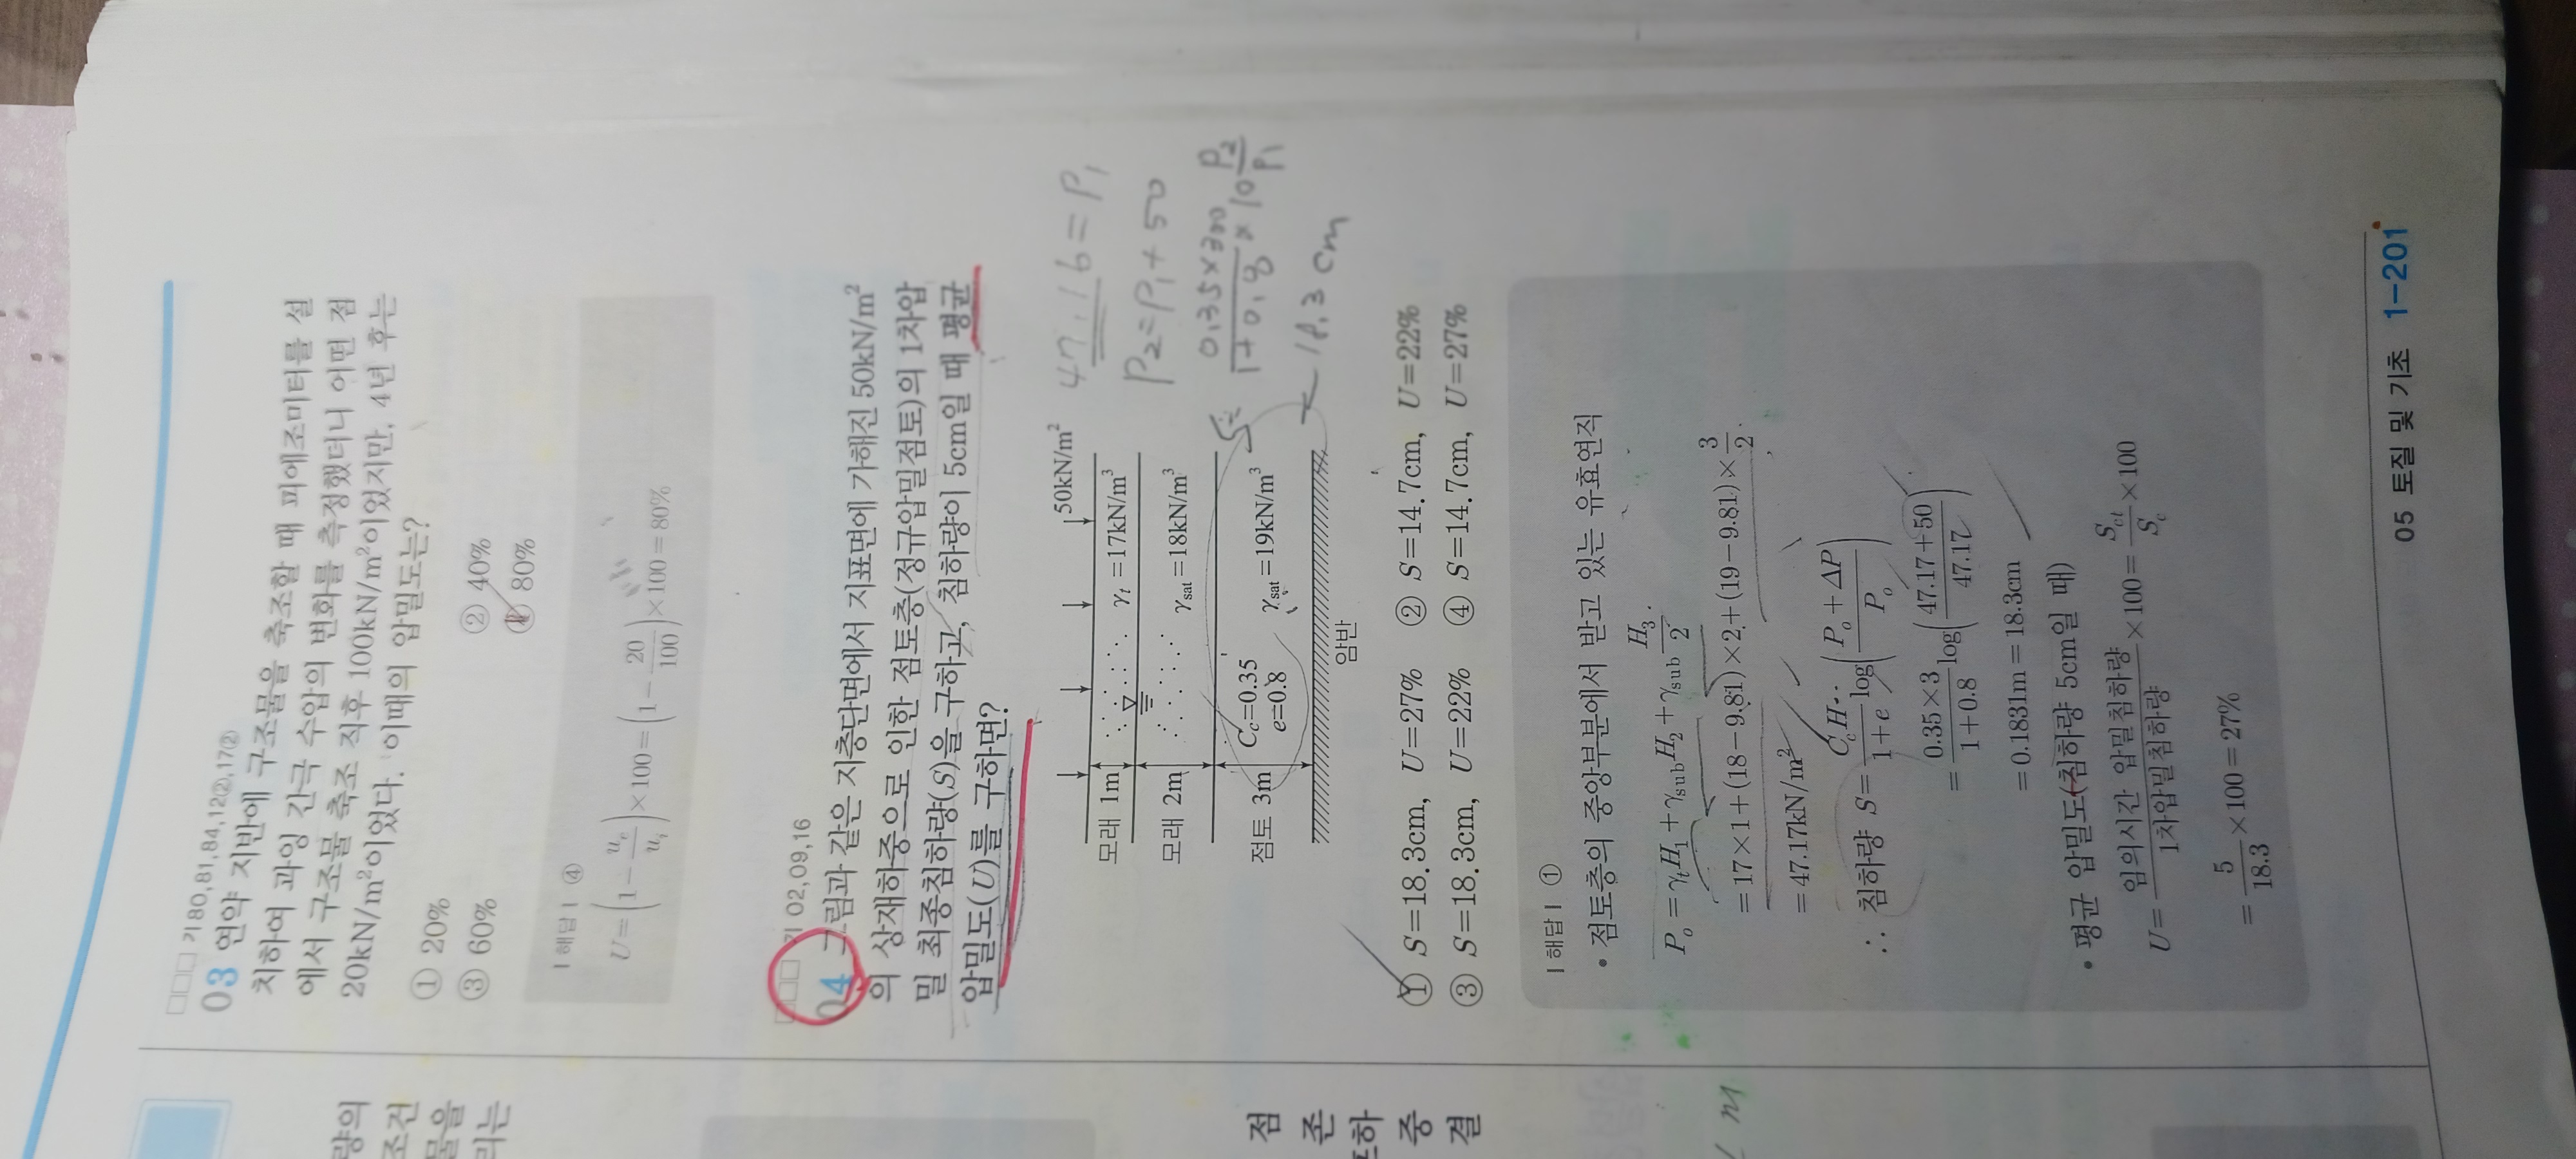 □□□ 기 80,81,84,12②,17②
03 연약 지반에 구조물을 축조할 때 피에조미터를 설
치하여 과잉 간극 수압의 변화를 측정했더니 어떤 점
에서 구조물 축조 직후 100kN/m²이었지만, 4년 후는
20kN/m²이었다. 이때의 압밀도는?
① 20% ② 40%
③ 60% ④ 80%
| 해답 | ④
U=(1-u_e/u_i)×100=(1-20/100)×100=80%
□□□ 기 02,09,16
04 그림과 같은 지층단면에서 지표면에 가해진 50kN/m²
의 상재하중으로 인한 점토층(정규압밀점토)의 1차압
밀 최종침하량(S)을 구하고, 침하량이 5cm일 때 평균
압밀도(U)를 구하면?
50kN/m²
모래 1m γt=17kN/m³
모래 2m γsat=18kN/m³
점토 3m Cc=0.35 e=0.8 γsat=19kN/m³
암반
47.16=P1
P2=P1+50
0.35×300/1+0.8 × log P2/P1
18.3cm
① S=18.3cm, U=27% ② S=14.7cm, U=22%
③ S=18.3cm, U=22% ④ S=14.7cm, U=27%
| 해답 | ①
• 점토층의 중앙부분에서 받고 있는 유효연직
P_o=γ_tH_1+γ_subH_2+γ_sub H_3/2
=17×1+(18-9.81)×2+(19-9.81)×3/2
=47.17kN/m²
∴ 침하량 S=C_cH/1+e log(P_o+ΔP/P_o)
=0.35×3/1+0.8 log(47.17+50/47.17)
=0.1831m=18.3cm
• 평균 압밀도(침하량 5cm일 때)
U=임의시간 압밀침하량/1차압밀침하량×100=S_ct/S_c×100
=5/18.3×100=27%
05 토질 및 기초 1-201
량의
조건
물을
리는
점
존
포하
중
결
m